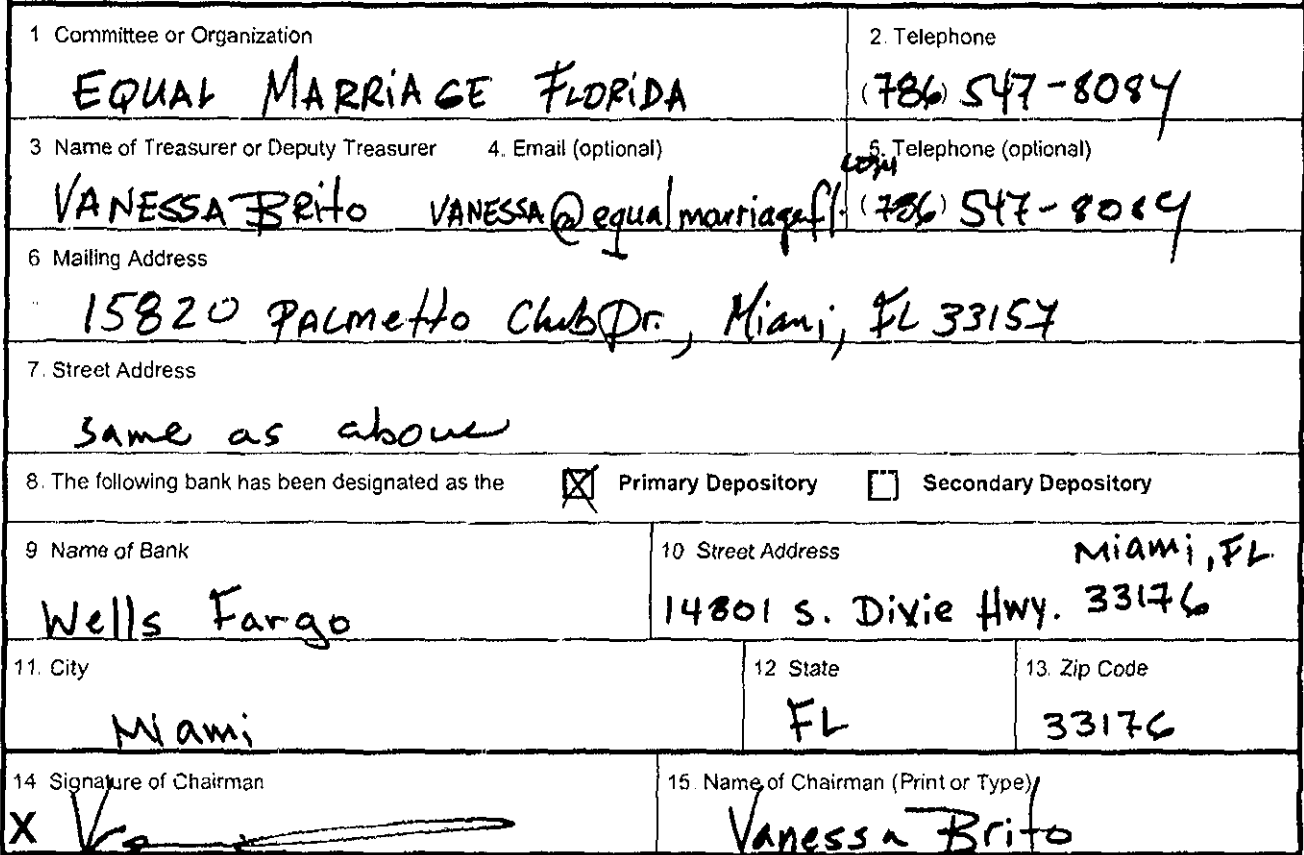 1 Committee or Organization
EQUAL MARRIAGE FLORIDA
2. Telephone
(786) 547-8084
3 Name of Treasurer or Deputy Treasurer
VANESSA BRito
4. Email (optional)
VANESSA@equalmarriagefl.com
5. Telephone (optional)
(786) 547-8084
6 Mailing Address
15820 PALmetto Club Dr., Miami, FL 33157
7. Street Address
same as above
8. The following bank has been designated as the Primary Depository Secondary Depository
9 Name of Bank
Wells Fargo
10 Street Address
Miami, FL
14801 S. Dixie Hwy. 33176
11. City
Miami
12 State
FL
13. Zip Code
33176
14 Signature of Chairman
X
15. Name of Chairman (Print or Type)
Vanessa Brito